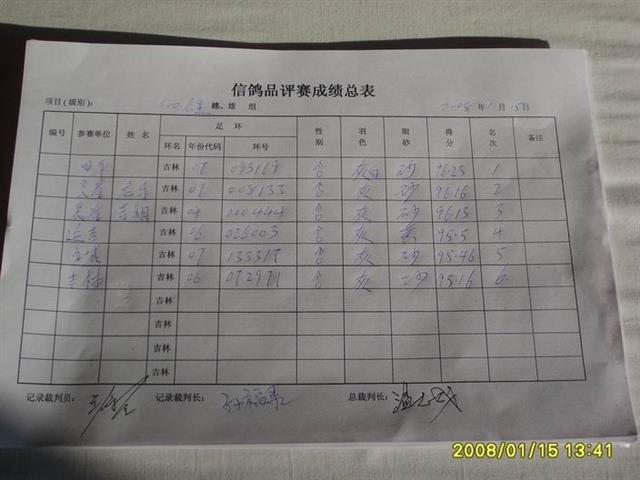 信鸽品评赛成绩总表
项目(级别): 500 雄 组 2008 年 1 月 15 日
编号 参赛单位 姓名 足环 性别 羽色 眼砂 得分 名次 备注
环名 年份代码 环号
吉林 07 093169 灰白 砂 96.25 1
吉林 07 008133 灰 砂 96.16 2
吉林 04 100444 灰 砂 96.13 3
延吉 吉林 06 026003 灰 黄 95.5 4
吉林 07 133317 灰 砂 95.46 5
吉林 吉林 06 072971 灰 砂 95.16 6
吉林
吉林
吉林
吉林
记录裁判员: 记录裁判长: 总裁判长:
2008/01/15 13:41